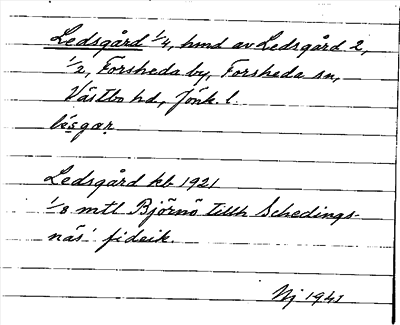 Ledsgård 1/4, hmd av Ledsgård 2,
1/2, Forsheda by, Forsheda sn,
Västbo hd, Jönk. l.
lésgar
Ledsgård kb 1921
1/8 mtl Björnö tillh Schedings-
näs' fideik.
Nj 1941